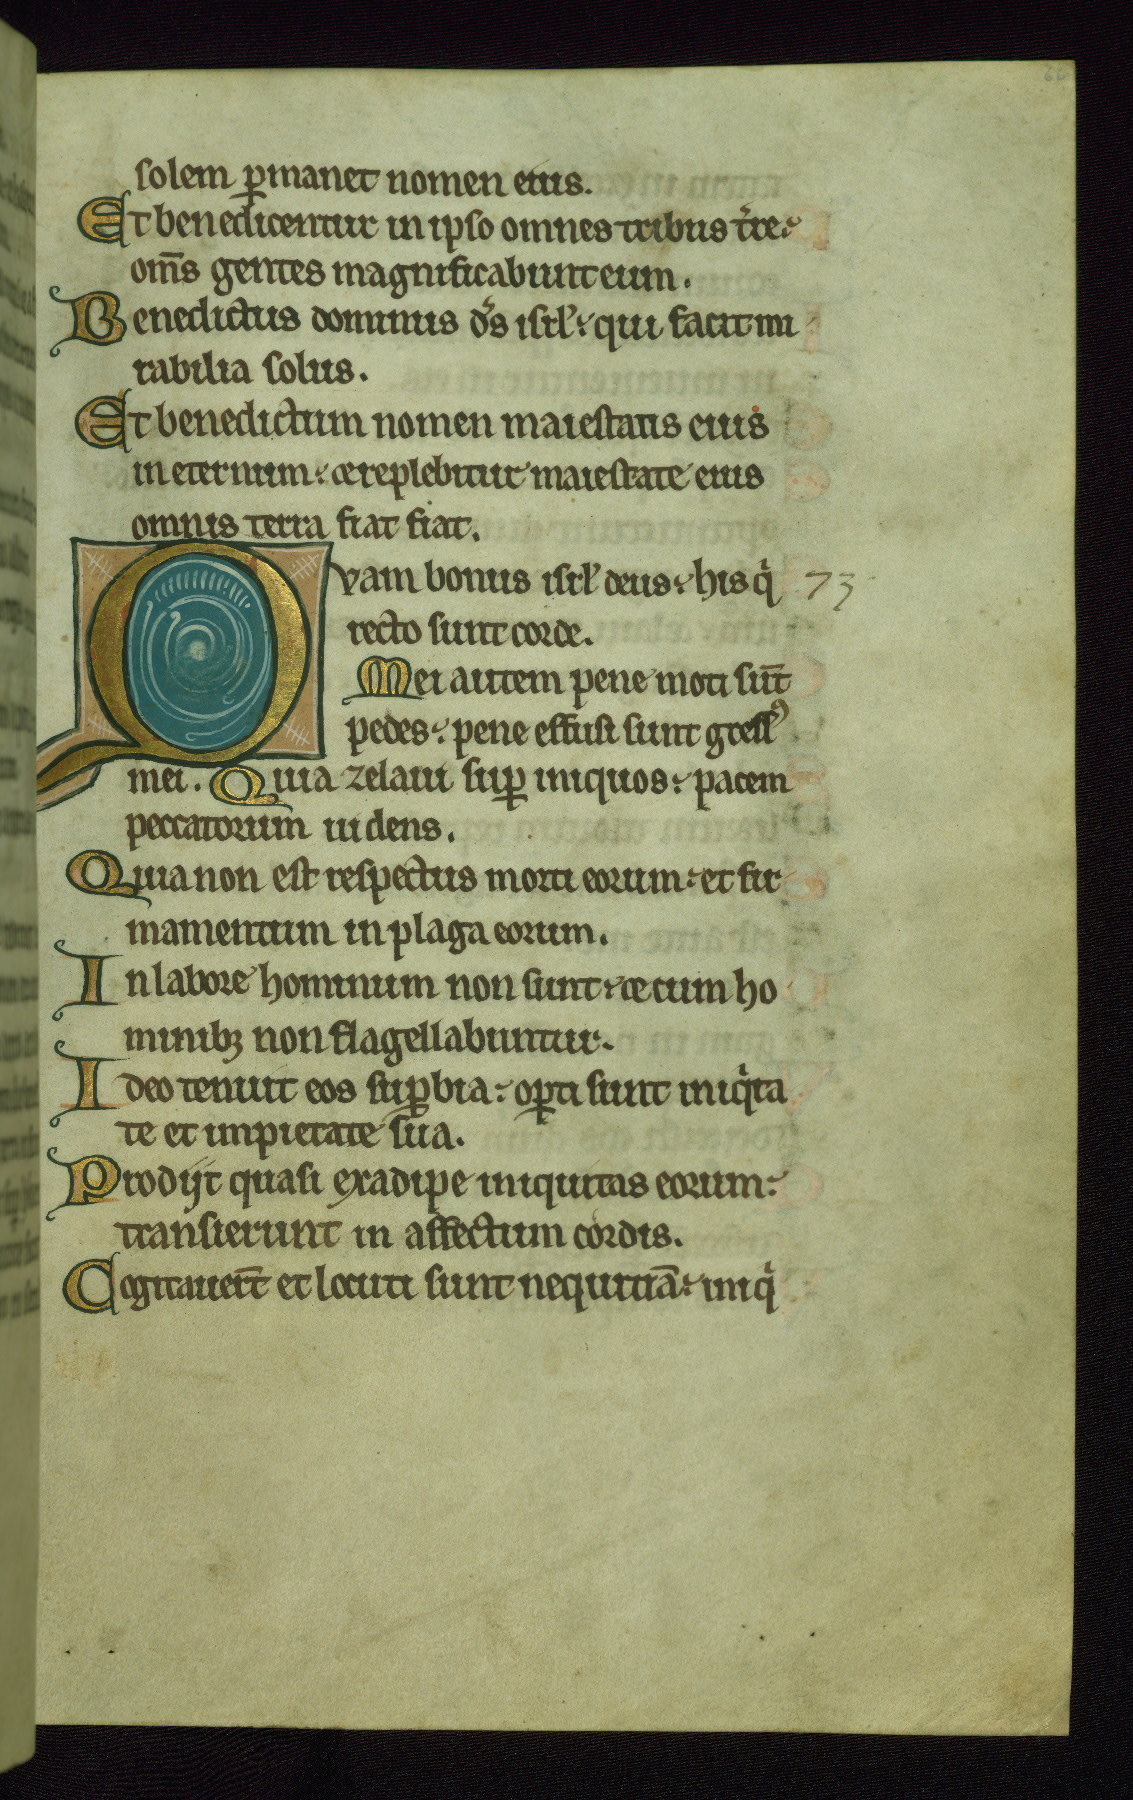 solem ꝑmanet nomen eius.
Et benedicentur in ipso omnes tribus t̾re:
om̄s gentes magnificabunt eum.
Benedictus dominus d̾s isrl̾: qui facit mi
rabilia solus.
Et benedictum nomen maiestatis eius
in eternum: et replebitur maiestate eius
omnis terra fiat fiat.
Quam bonus isrl̾ deus: his qͥ 73
recto sunt corde.
Mei autem pene moti sūt
pedes: pene effusi sunt gressꝰ
mei. Quia zelaui suꝑ iniquos: pacem
peccatorum uidens.
Quia non est respectus morti eorum: et fir
mamentum in plaga eorum.
In labore hominum non sunt: et cum ho
minibꝫ non flagellabuntur.
Ideo tenuit eos suꝑbia: oꝑti sunt iniqͥta
te et impietate sua.
Prodijt quasi ex adipe iniquitas eorum:
transierunt in affectum cordis.
Cogitauer̄t et locuti sunt nequitiā: iniqͥ